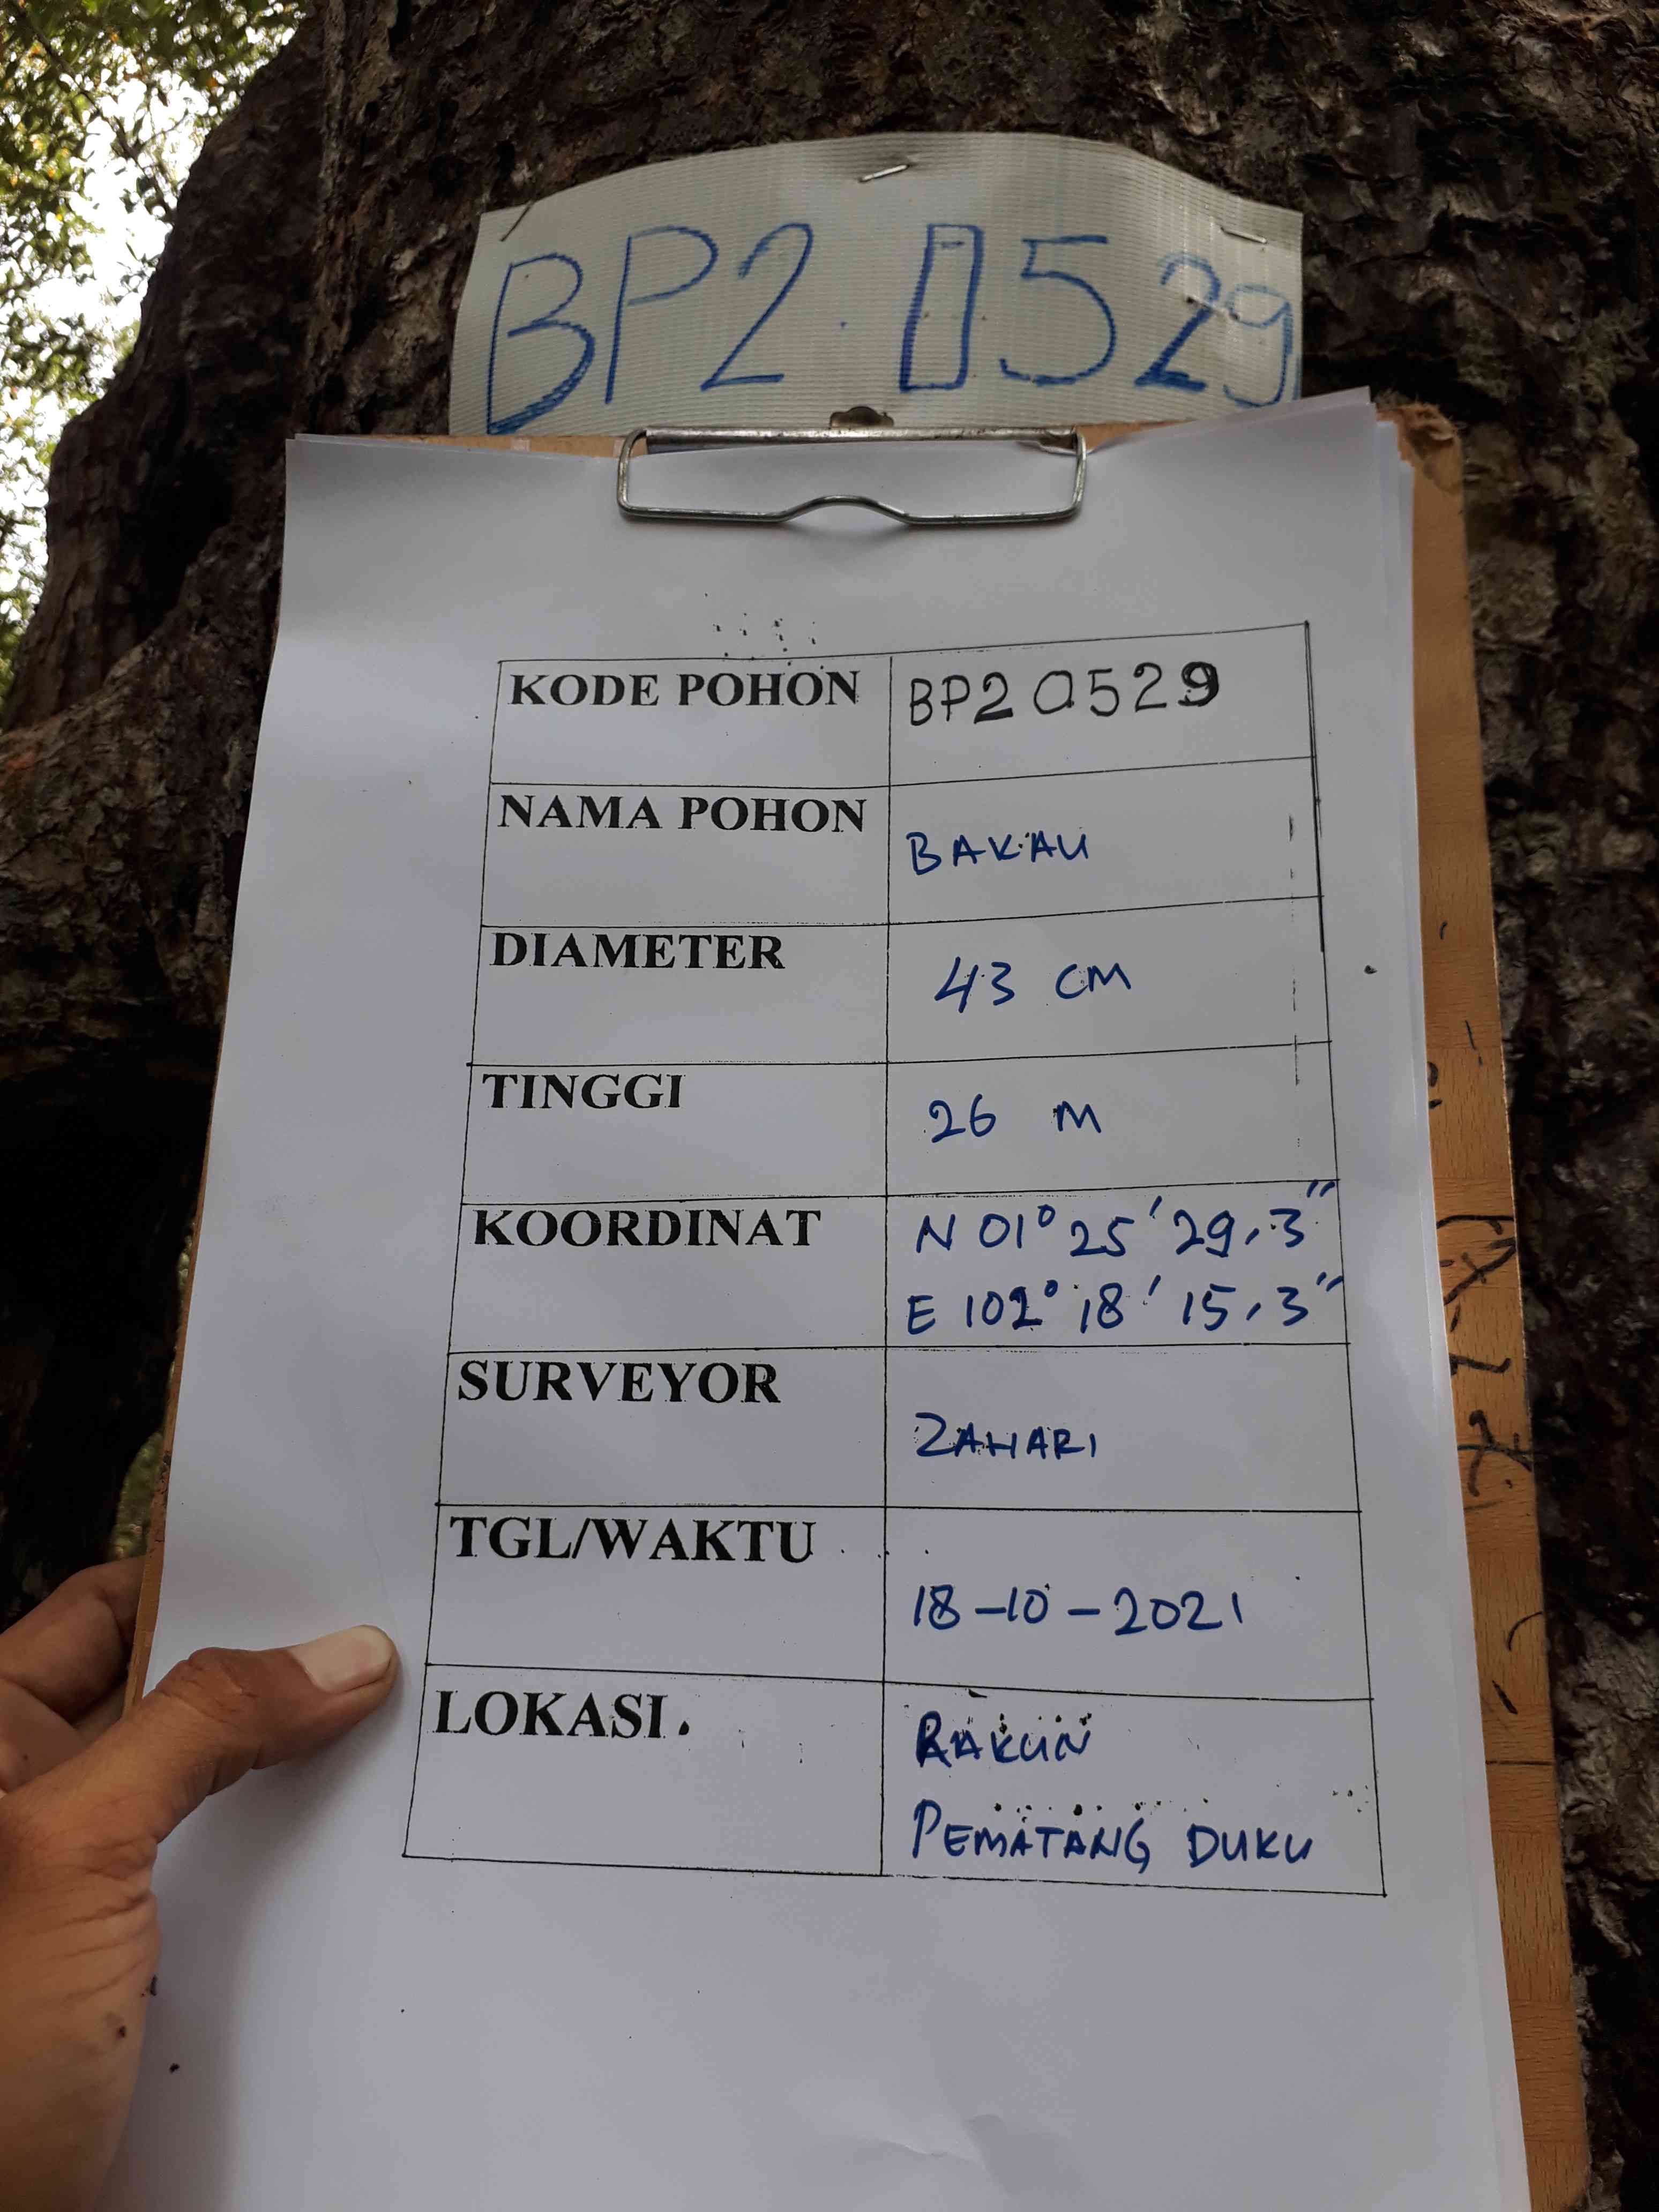 BP2.0529
KODE POHON BP20529
NAMA POHON BAKAU
DIAMETER 43 CM
TINGGI 26 M
KOORDINAT N 01° 25' 29,3"
E 102° 18' 15,3"
SURVEYOR ZAHARI
TGL/WAKTU 18-10-2021
LOKASI.
PEMATANG DUKU